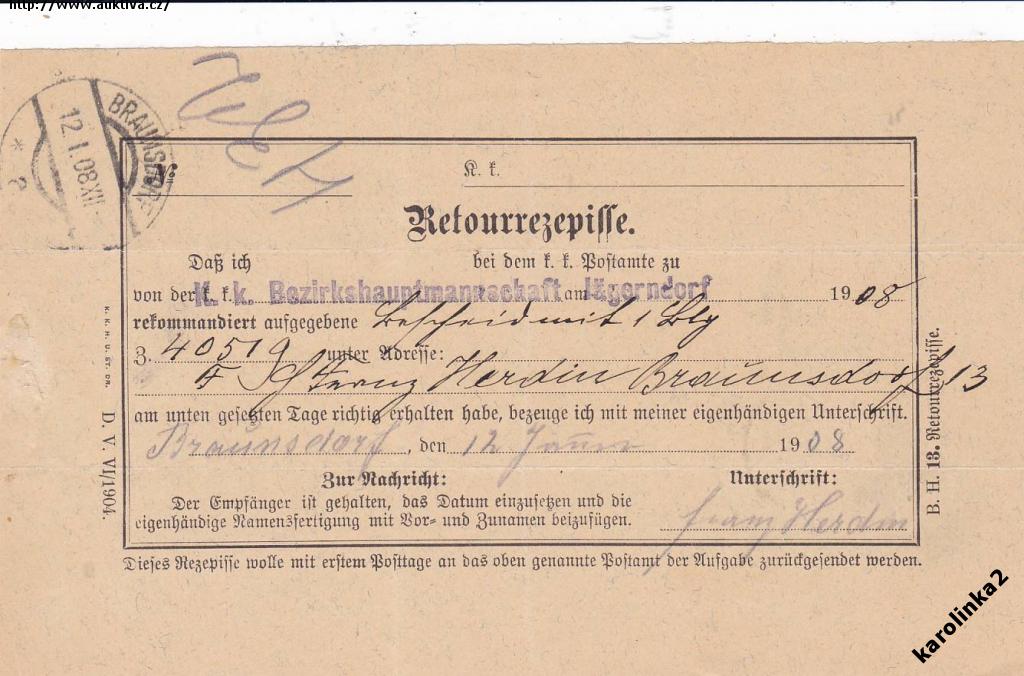 http://www.auktiva.cz/
BRAUNSDORF
12.1.08 XII
№
K. k.
Retourrezepisse.
Daß ich bei dem k. k. Postamte zu
von der k. k. K. k. Bezirkshauptmannschaft am Jägerndorf 1908
rekommandiert aufgegebene Bescheid mit 1 Blg
Z. 40519 unter Adresse:
Franz Herdin Braunsdorf 13
am unten gesetzten Tage richtig erhalten habe, bezeuge ich mit meiner eigenhändigen Unterschrift.
Braunsdorf, den 12 Jänner 1908
Zur Nachricht: Unterschrift:
Der Empfänger ist gehalten, das Datum einzusetzen und die
eigenhändige Namensfertigung mit Vor- und Zunamen beizufügen. Franz Herdin
Dieses Rezepisse wolle mit erstem Posttage an das oben genannte Postamt der Aufgabe zurückgesendet werden.
K. K. H. U. ST. DR. D. V. VI/1904.
B. H. 13. Retourrezepisse.
karolinka2